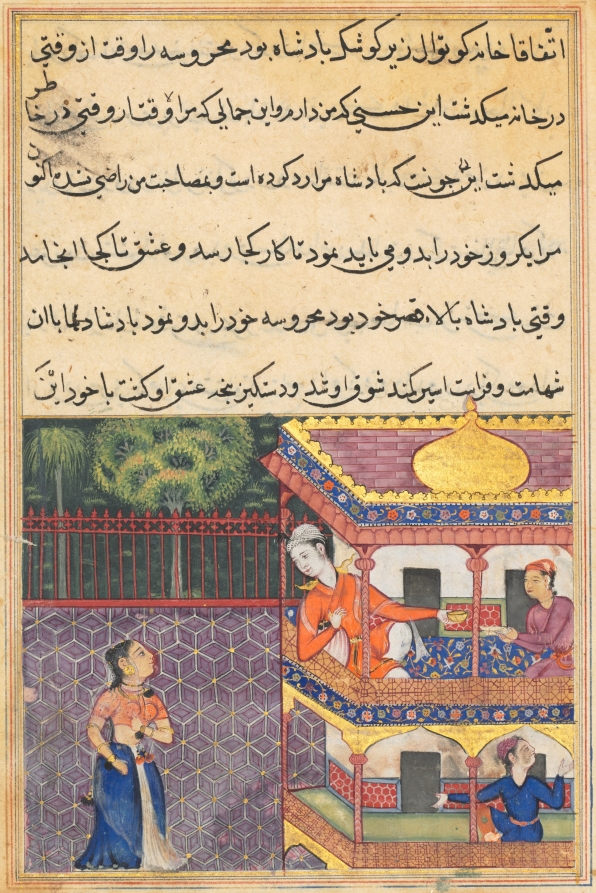 اتفاقا خانه کوتوال زیر کوشک بادشاه بود محروسه را وقت از وقتی
در خانه میکذشت این حسنی که من دارم و این جمالی که مرا و قتا روقتی در خا
طر
میکذشت این جونست که بادشاه مرا رد کرده است و بمصاحبت من راضی نشده اکنون
مرا یکروز خود را بدو می باید نمود تا کار کجا رسد و عشق تا کجا انجامد
وقتی بادشاه بالاء قصر خود بود محروسه خود را بدو نمود بادشاه با ان
شهامت و فراست اسیر کمند شوق او شد و دستکیر پنجه عشق او کشت با خود این